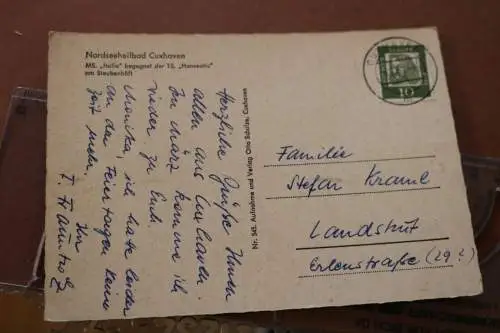 Nordseeheilbad Cuxhaven
MS. „Italia" begegnet der TS. „Hanseatic"
am Steubenhöft
Herzliche Grüße Ihnen
allen aus Cuxhaven.
Im März komme ich
wieder zu Euch.
Monika, ich hatte leider
an den Feiertagen keine
Zeit mehr.
Ihr
Nr. 565. Aufnahme und Verlag Otto Schulze, Cuxhaven
10
Familie
Stefan Kraml
Landshut
Erlenstraße (29 ?)